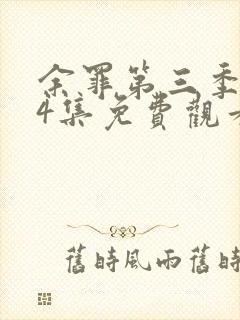 余罪第三季
4集免費觀
舊時風雨舊時